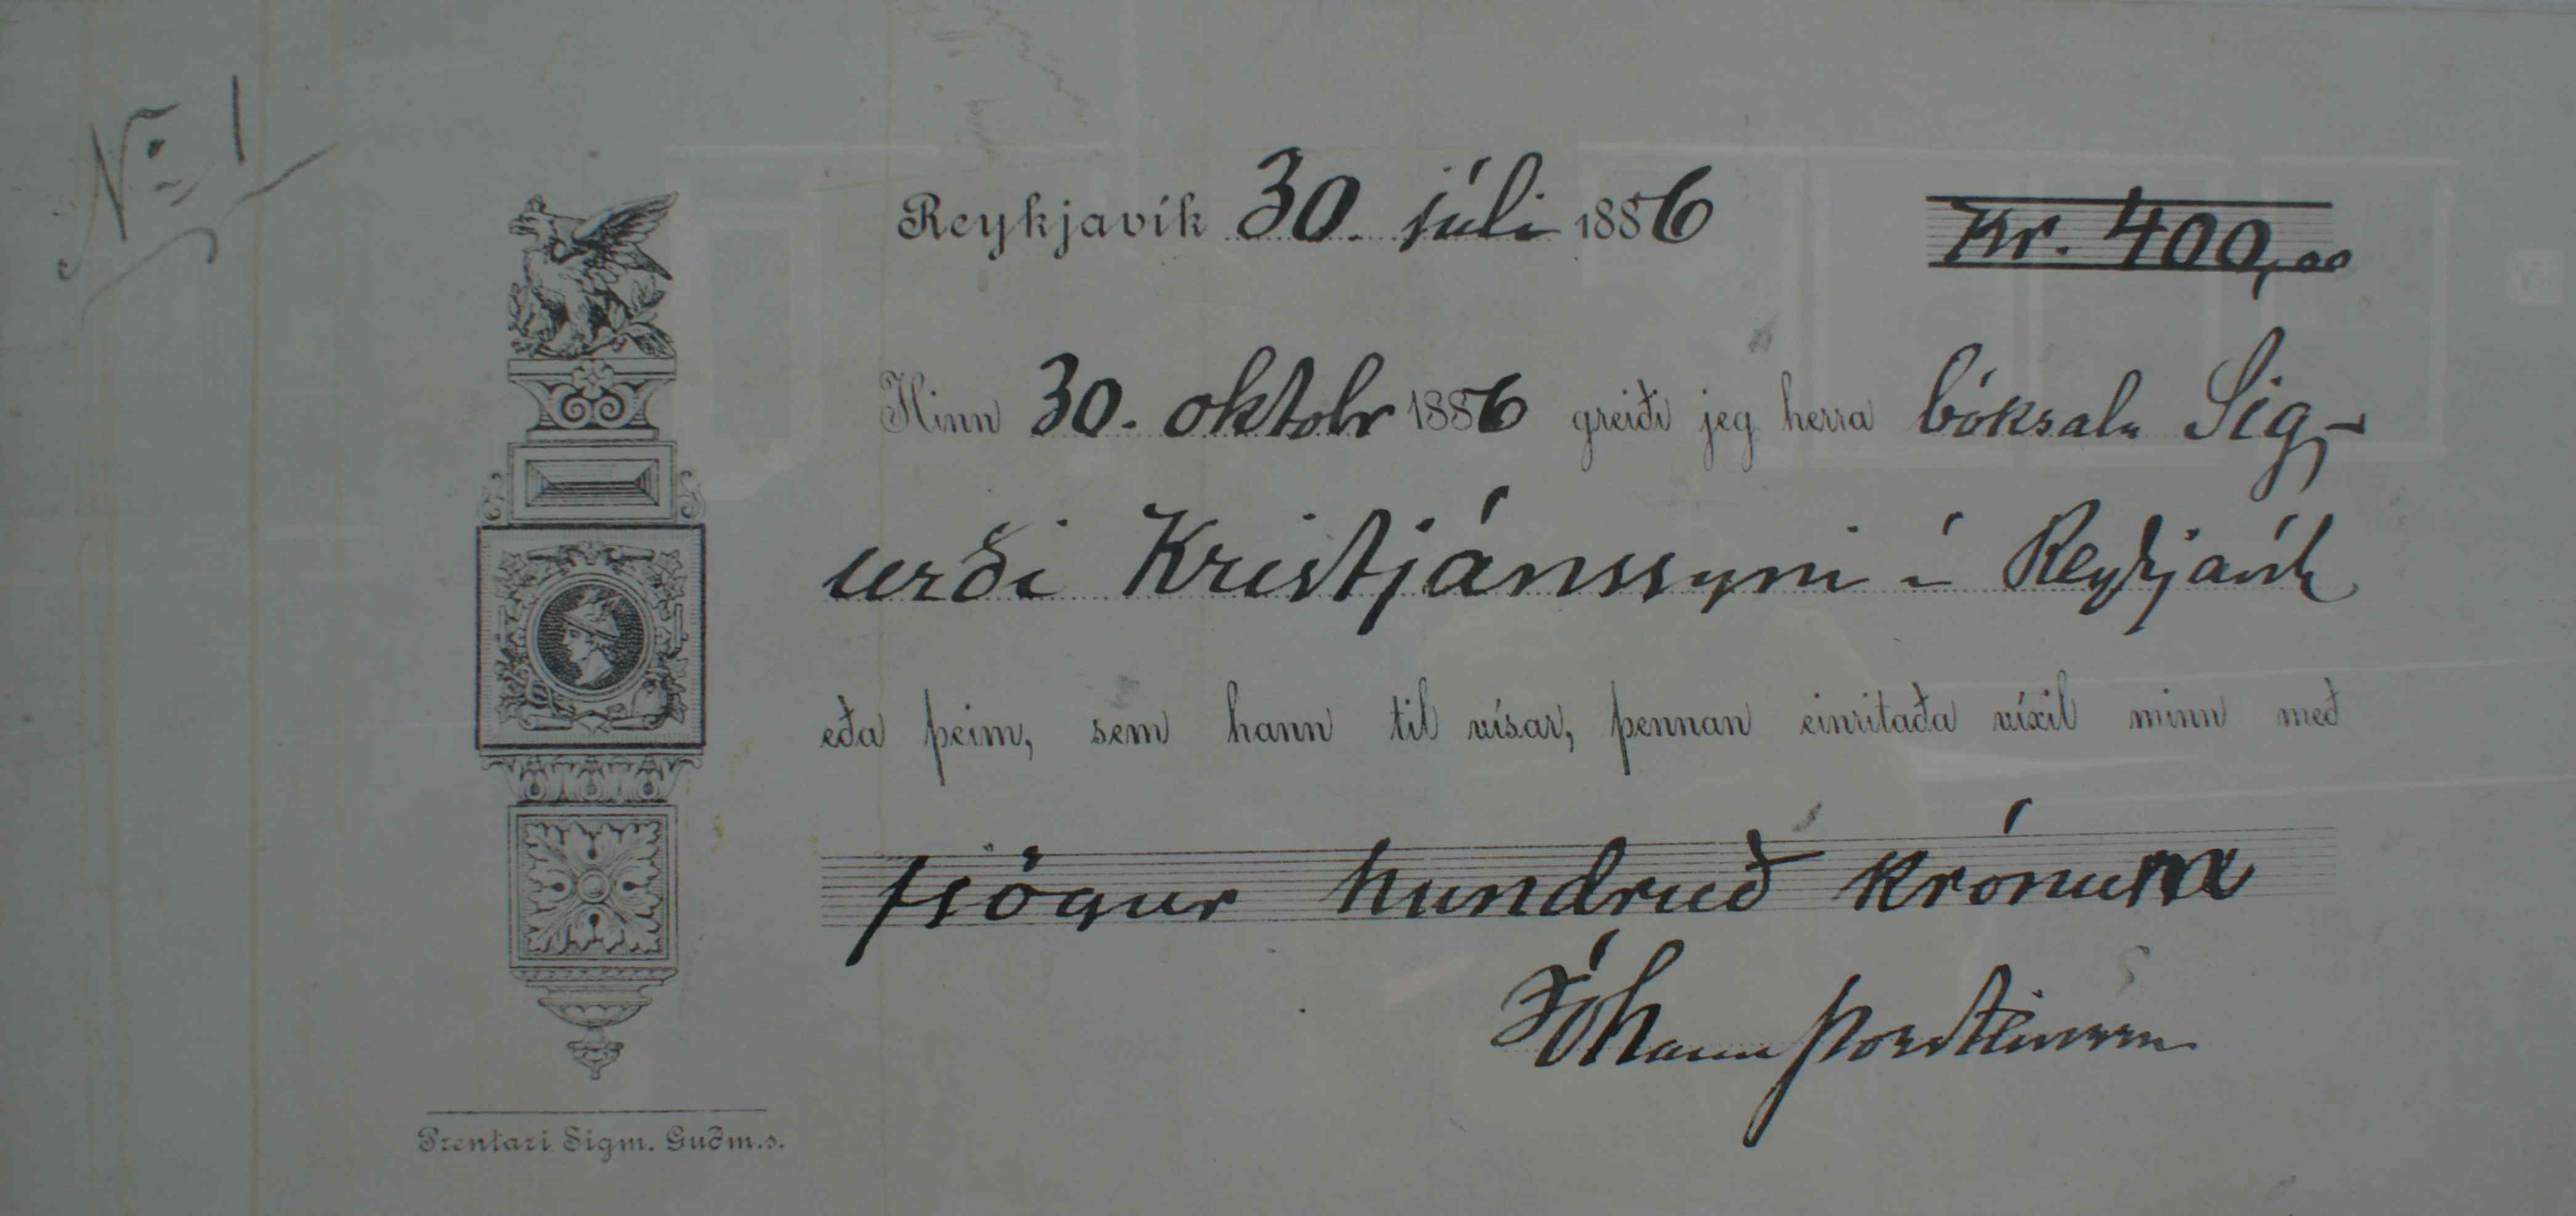 No 1
Reykjavík 30. júlí 1886 Kr. 400,00
Hinn 30. oktobr 1886 greiði jeg herra bóksala Sig-
urði Kristjánssyni í Reykjavík
eða þeim, sem hann til vísar, þennan einritaða víxil minn með
fjögur hundruð krónum
Jóhann Þorsteinsson
Prentari Sigm. Guðm.s.